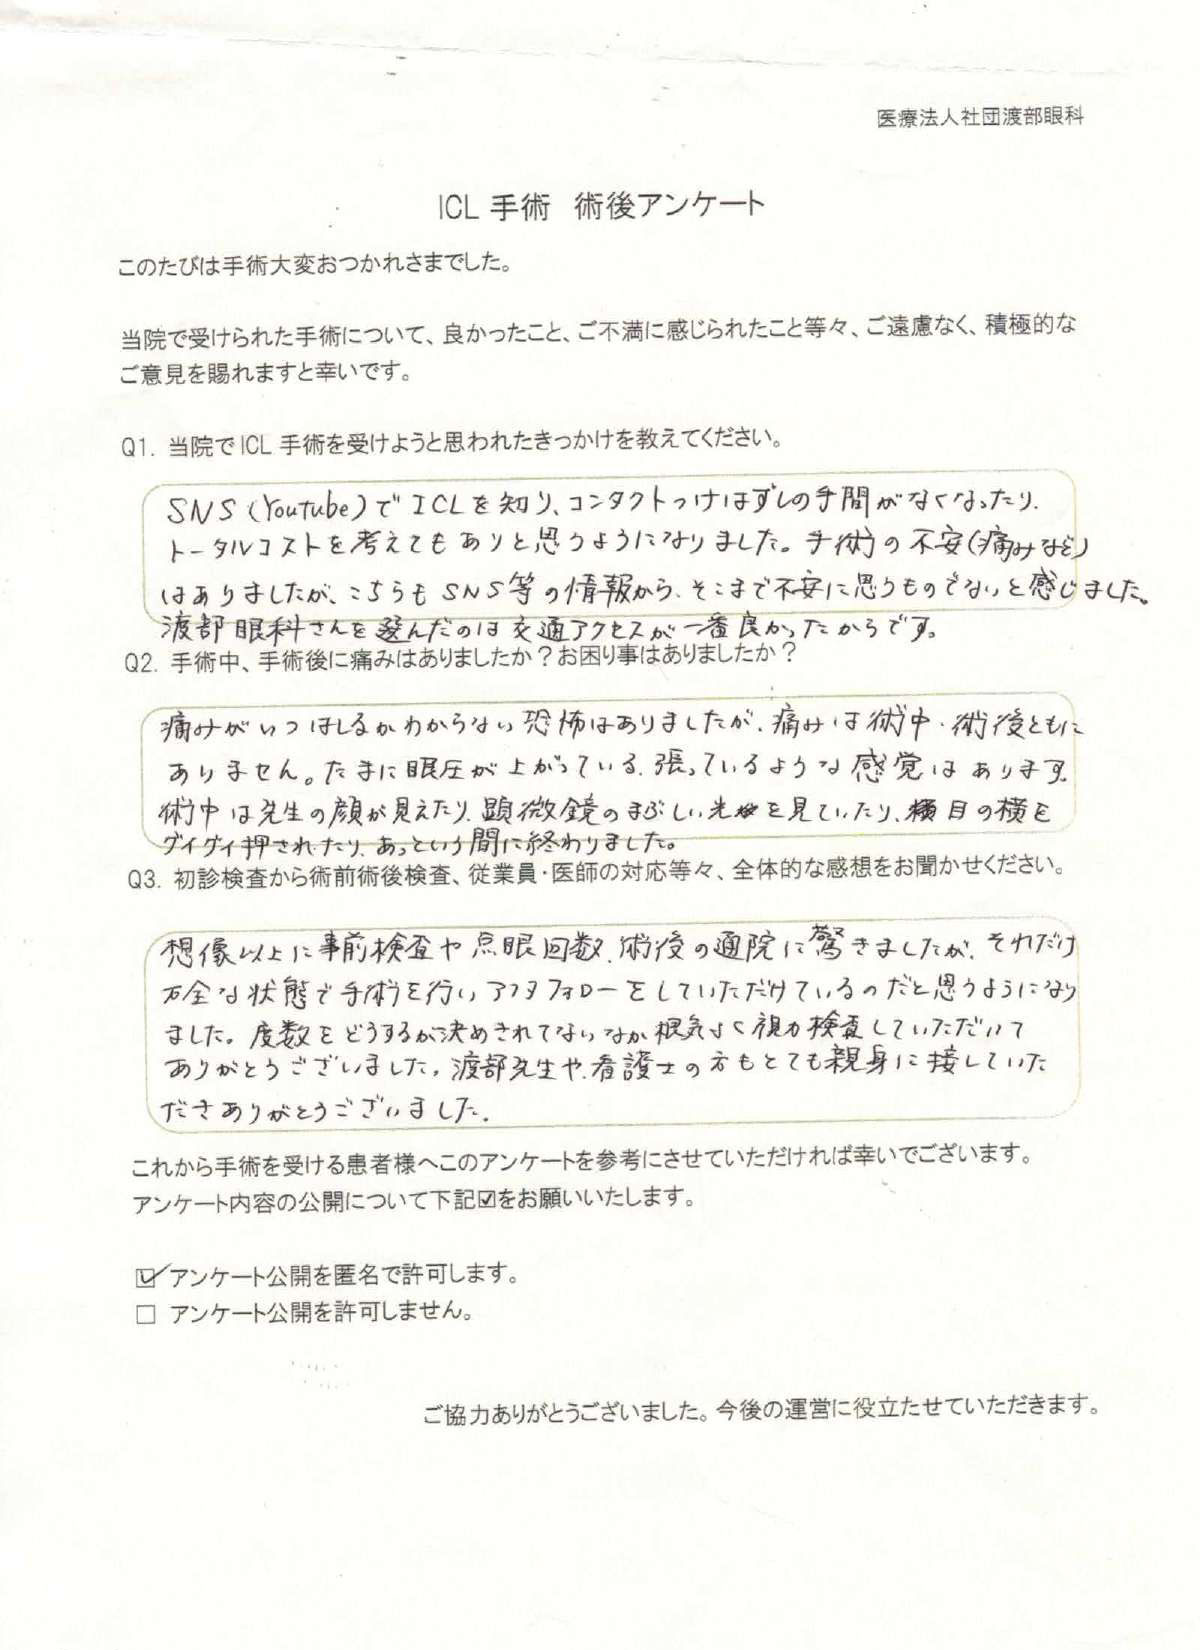 医療法人社団渡部眼科
ICL 手術　術後アンケート
このたびは手術大変おつかれさまでした。
当院で受けられた手術について、良かったこと、ご不満に感じられたこと等々、ご遠慮なく、積極的な
ご意見を賜れますと幸いです。
Q1. 当院でICL 手術を受けようと思われたきっかけを教えてください。
SNS(Youtube)でICLを知り、コンタクトつけはずしの手間がなくなったり、
トータルコストを考えてもありと思うようになりました。手術の不安(痛みなど)
はありましたが、こちらもSNS等の情報から、そこまで不安に思うものでないと感じました。
渡部眼科さんを選んだのは交通アクセスが一番良かったからです。
Q2. 手術中、手術後に痛みはありましたか？お困り事はありましたか？
痛みがいつはしるかわからない恐怖はありましたが、痛みは術中・術後ともに
ありません。たまに眼圧が上がっている、張っているような感覚はあります。
術中は先生の顔が見えたり、顕微鏡のまぶしい光を見ていたり、目の横を
グイグイ押されたり、あっという間に終わりました。
Q3. 初診検査から術前術後検査、従業員・医師の対応等々、全体的な感想をお聞かせください。
想像以上に事前検査や点眼回数、術後の通院に驚きましたが、それだけ
万全な状態で手術を行いアフタフォローをしていただけているのだと思うようになり
ました。度数をどうするか決めきれてないなか根気よく視力検査していただいて
ありがとうございました。渡部先生や、看護士の方もとても親身に接していた
ださありがとうございました。
これから手術を受ける患者様へこのアンケートを参考にさせていただければ幸いでございます。
アンケート内容の公開について下記☑をお願いいたします。
☑ アンケート公開を匿名で許可します。
□ アンケート公開を許可しません。
ご協力ありがとうございました。今後の運営に役立たせていただきます。